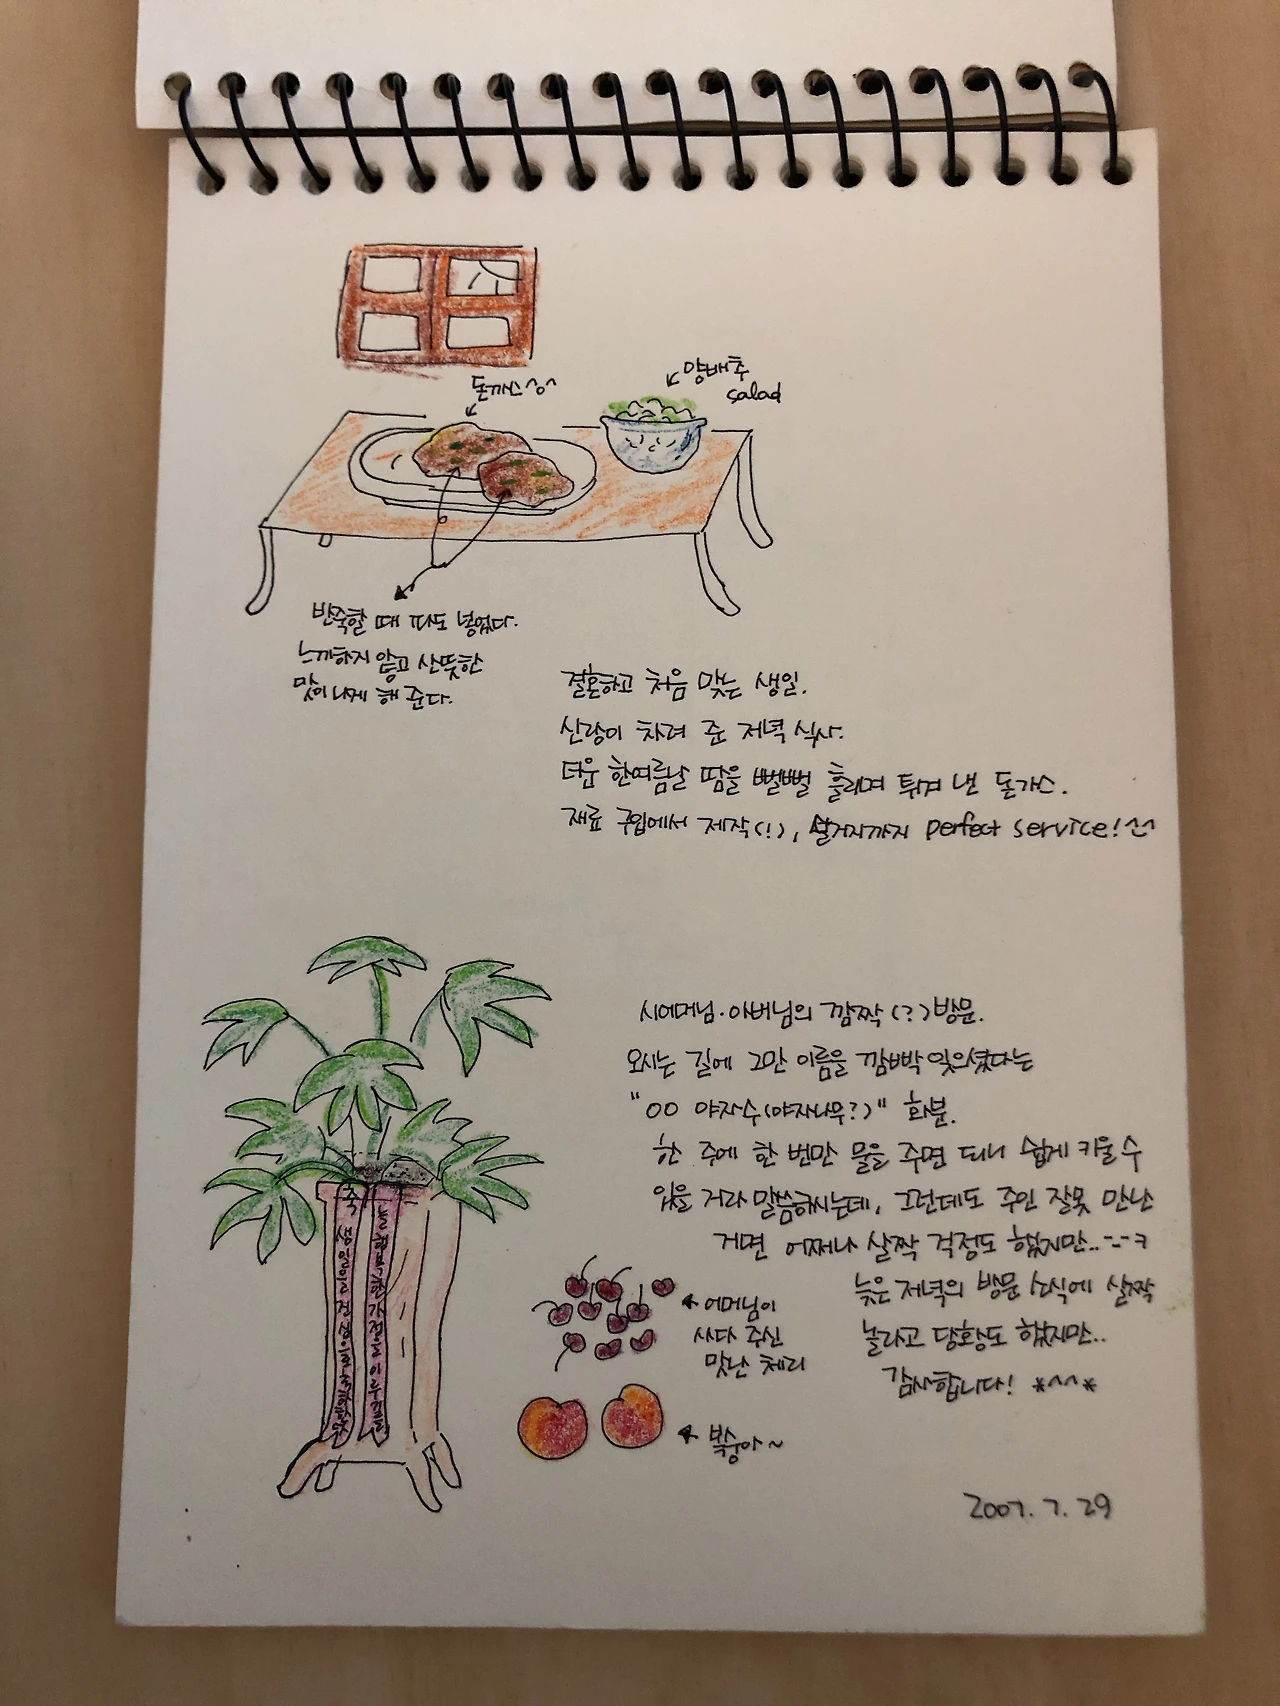 돈까스^o^
양배추
salad
반죽할 때 파도 넣었다.
느끼하지 않고 산뜻한
맛이 나게 해 준다.
결혼하고 처음 맞는 생일.
신랑이 차려 준 저녁 식사.
더운 한여름날 땀을 뻘뻘 흘리며 튀겨 낸 돈가스.
재료 구입에서 제작(!), 설거지까지 perfect service!^^
시어머님·아버님의 깜짝(?)방문.
오시는 길에 그만 이름을 깜빡 잊으셨다는
"OO 야자수(야자나무?)" 화분.
한 주에 한 번만 물을 주면 되니 쉽게 키울 수
있을 거라 말씀하시는데, 그런데도 주인 잘못 만난
거면 어쩌나 살짝 걱정도 했지만..-_-ㅋ
늦은 저녁의 방문 소식에 살짝
놀라고 당황도 했지만..
감사합니다! *^^*
축
생일을 진심으로 축하
늘 행복한 가정을 이루길
어머님이
사다 주신
맛난 체리
복숭아~
2007. 7. 29